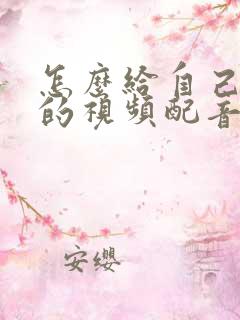 怎麼給自己
的視頻配音
安缨